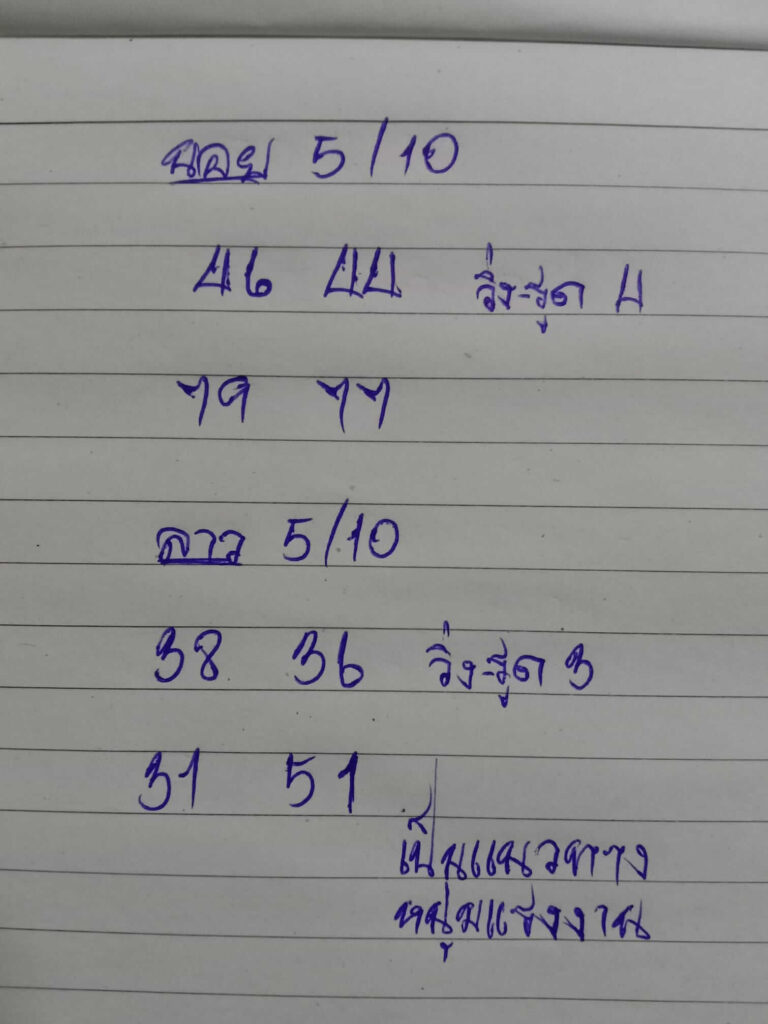 นอย 5/10
46 44 วิ่ง-รูด 4
79 77
ลาว 5/10
38 36 วิ่ง-รูด 3
31 51
เป็นแนวทาง
หนุ่มแรงงาน